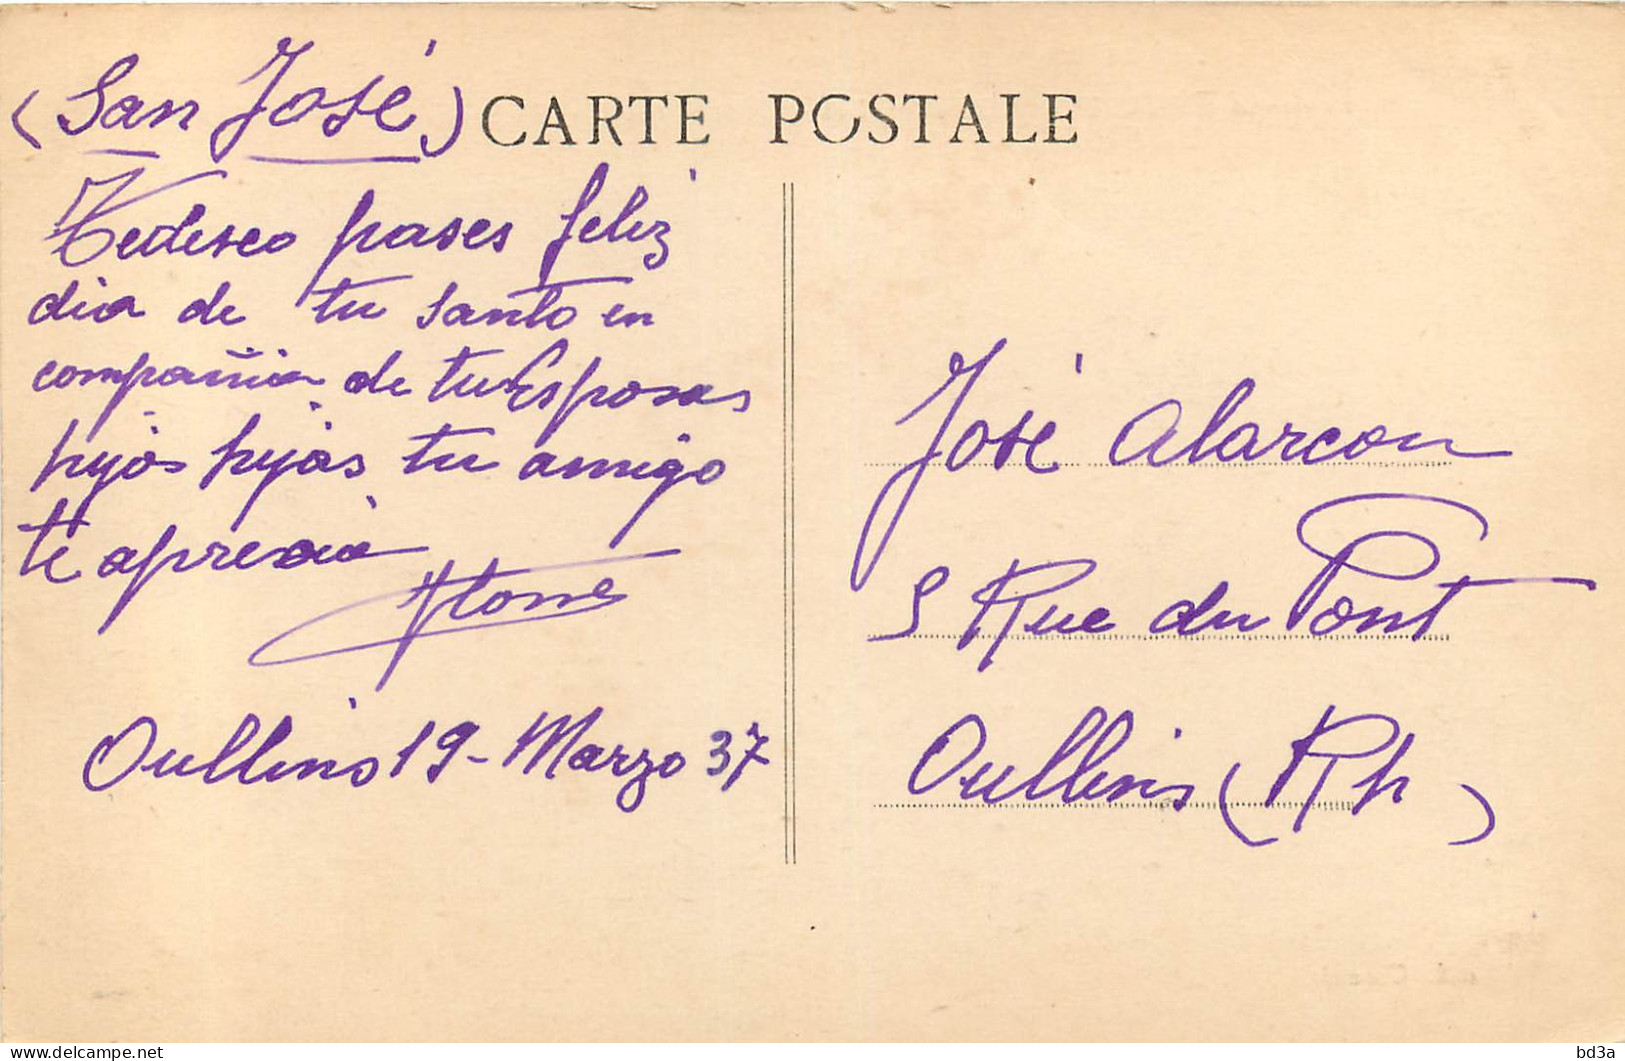 (San José)
CARTE POSTALE
Tedeseo pases feliz
dia de tu santo en
compañia de tu Esposas
hijos hijas tu amigo
te apresia
Oullins 19 - Marzo 37
José Alarcon
5 Rue du Pont
Oullins (Rh)
delcampe.net
bd3a